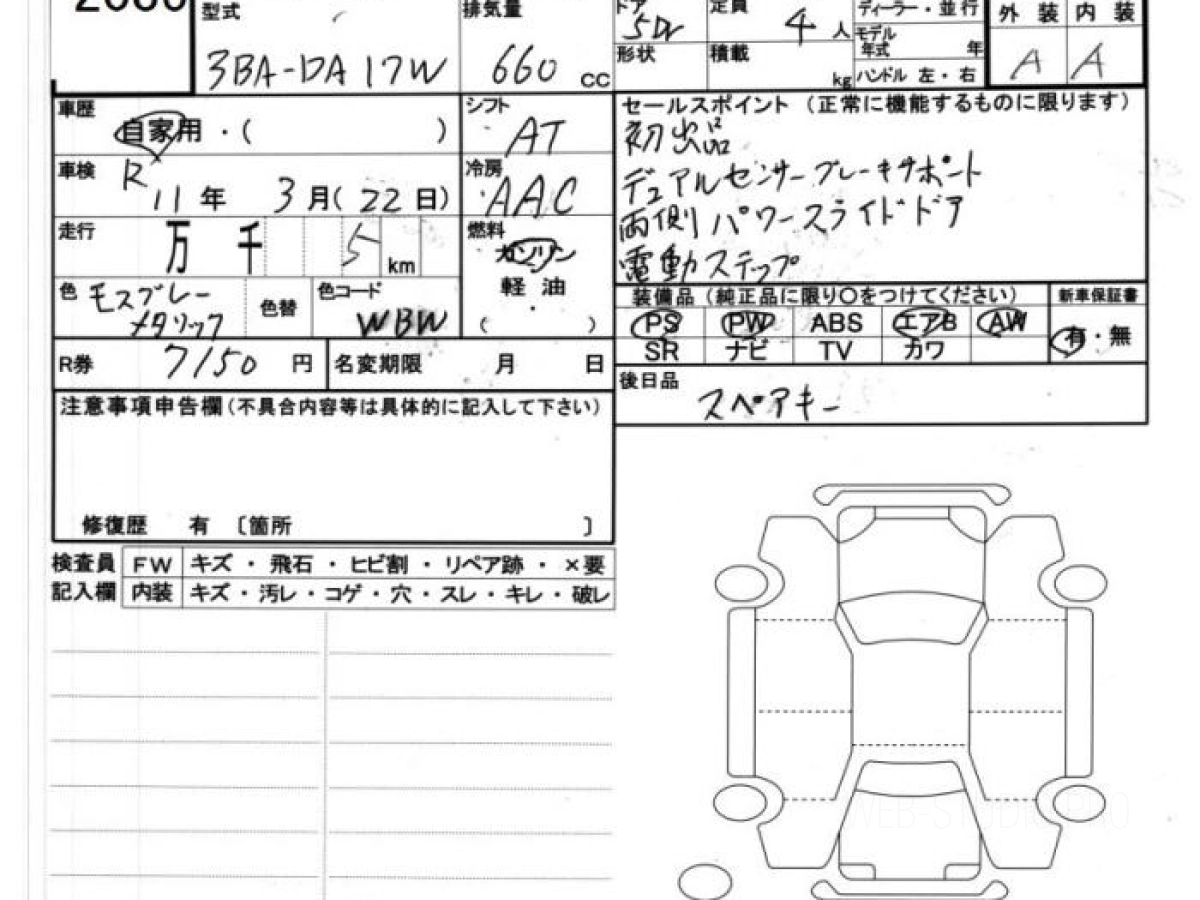 型式
3BA-DA17W
排気量
660 cc
ドア
5D
定員
4人
形状
積載
kg
ディーラー・並行
モデル年式 年
ハンドル 左・右
外装 内装
A A
車歴
自家用・( )
車検
R 11年 3月(22日)
走行
万 千 5 km
色
モスグレー
メタリック
色替
色コード
WBW
シフト
AT
冷房
AAC
燃料
ガソリン
軽油
・
( )
R券 7150 円
名変期限 月 日
セールスポイント(正常に機能するものに限ります)
初出品
デュアルセンサーブレーキサポート
両側パワースライドドア
電動ステップ
装備品(純正品に限り○をつけてください)
PS PW ABS エアB AW
SR ナビ TV カワ
新車保証書
有・無
後日品
スペアキー
注意事項申告欄(不具合内容等は具体的に記入して下さい)
修復歴 有 〔箇所 〕
検査員
記入欄
FW キズ・飛石・ヒビ割・リペア跡・×要
内装 キズ・汚レ・コゲ・穴・スレ・キレ・破レ